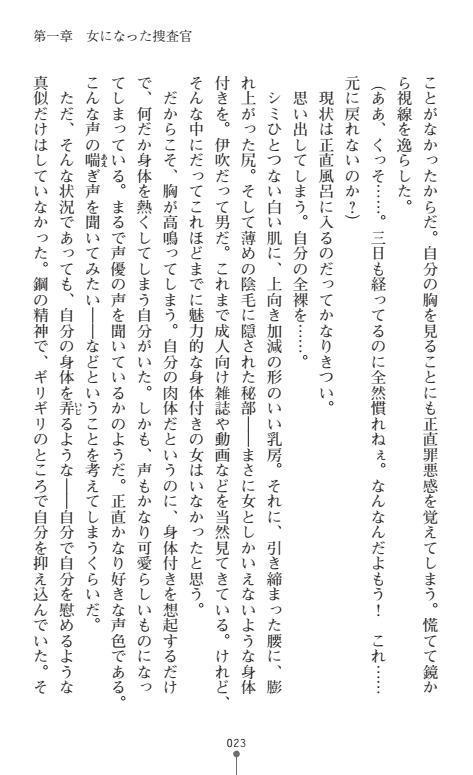 第一章　女になった捜査官
ことがなかったからだ。自分の胸を見ることにも正直罪悪感を覚えてしまう。慌てて鏡か
ら視線を逸らした。
（ああ、くっそ……。三日も経ってるのに全然慣れねぇ。なんなんだよもう！　これ……
元に戻れないのか？）
現状は正直風呂に入るのだってかなりきつい。
思い出してしまう。自分の全裸を……。
シミひとつない白い肌に、上向き加減の形のいい乳房。それに、引き締まった腰に、膨
れ上がった尻。そして薄めの陰毛に隠された秘部――まさに女としかいえないような身体
付きを。伊吹だって男だ。これまで成人向け雑誌や動画などを当然見てきている。けれど、
そんな中にだってこれほどまでに魅力的な身体付きの女はいなかったと思う。
だからこそ、胸が高鳴ってしまう。自分の肉体だというのに、身体付きを想起するだけ
で、何だか身体を熱くしてしまう自分がいた。しかも、声もかなり可愛らしいものになっ
てしまっている。まるで声優の声を聞いているかのようだ。正直かなり好きな声色である。
こんな声の喘ぎ声を聞いてみたい――などということを考えてしまうくらいだ。
ただ、そんな状況であっても、自分の身体を弄るような――自分で自分を慰めるような
真似だけはしていなかった。鋼の精神で、ギリギリのところで自分を抑え込んでいた。そ
023